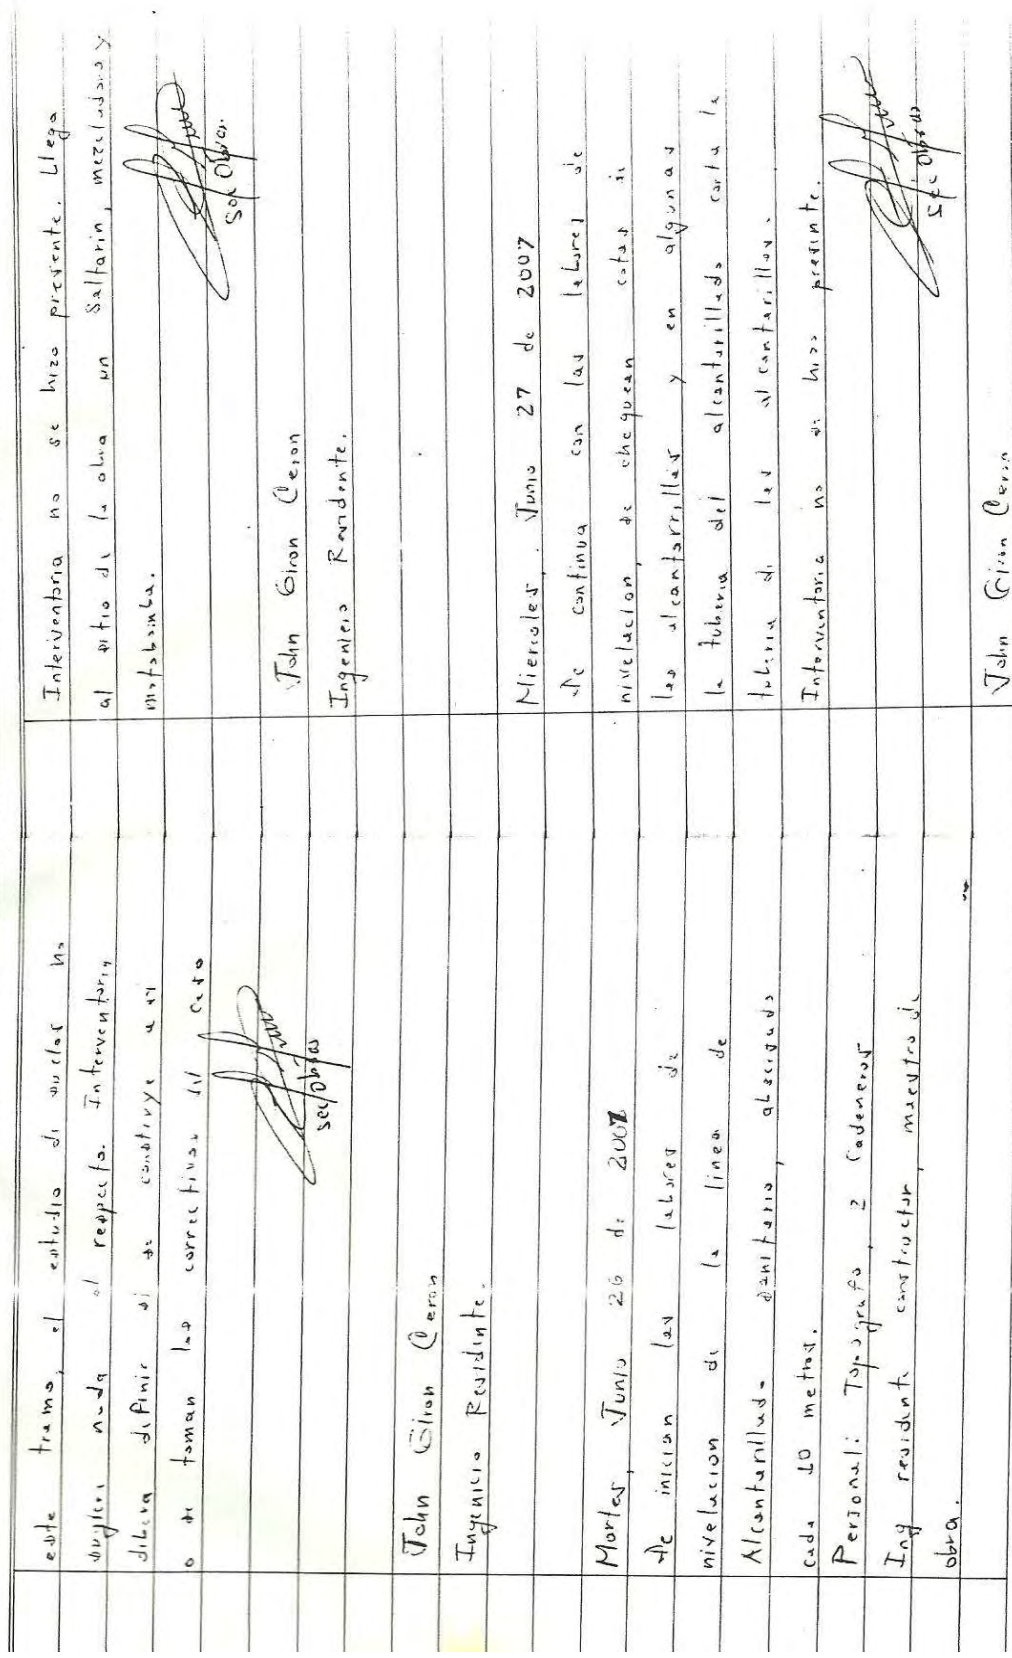 este tramo, el estudio de suelos no
sugiere nada al respecto. Interventoria
debera definir si se construye asi
o se toman los correctivos del caso
Sec Obras
John Giron Ceron
Ingeniero Residente.
Martes, Junio 26 de 2007
Se inician las labores de
nivelacion de la linea de
Alcantarillado sanitario, abscisado
cada 10 metros.
Personal: Topografo, 2 Cadeneros
Ing residente constructor, maestro de
obra.
Interventoria no se hizo presente. Llega
al sitio de la obra un Saltarin, mezcladora y
motobomba.
Sec Obras.
John Giron Ceron
Ingeniero Residente.
Miercoles, Junio 27 de 2007
Se continua con las labores de
nivelacion, se chequean cotas de
las alcantarillas y en algunas
la tuberia del alcantarillado corta la
tuberia de las alcantarillas.
Interventoria no se hizo presente.
Sec Obras
John Giron Ceron